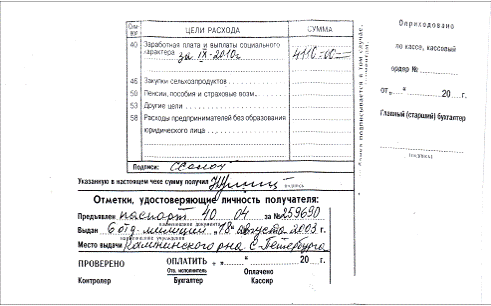 Сим-
вол ЦЕЛИ РАСХОДА СУММА
40 Заработная плата и выплаты социального
характера за IX-2010г 4110=00=
46 Закупки сельхозпродуктов
50 Пенсии, пособия и страховые возм.
53 Другие цели
58 Расходы предпринимателей без образования
юридического лица
Подписи:
Указанную в настоящем чеке сумму получил
подпись
Отметки, удостоверяющие личность получателя:
Предъявлен паспорт 40 04 за № 259690
наименование документа
Выдан 6 отд. милиции "18" августа 2003 г.
наименование учреждения
Место выдачи Калининского р-на С-Петербурга
ПРОВЕРЕНО ОПЛАТИТЬ " " 20 г.
Отв. исполнитель Оплачено
Контролер Бухгалтер Кассир
подписывается в том случае,
Оприходовано
по кассе, кассовый
ордер №
от " " 20 г.
Главный (старший) бухгалтер
(подпись)